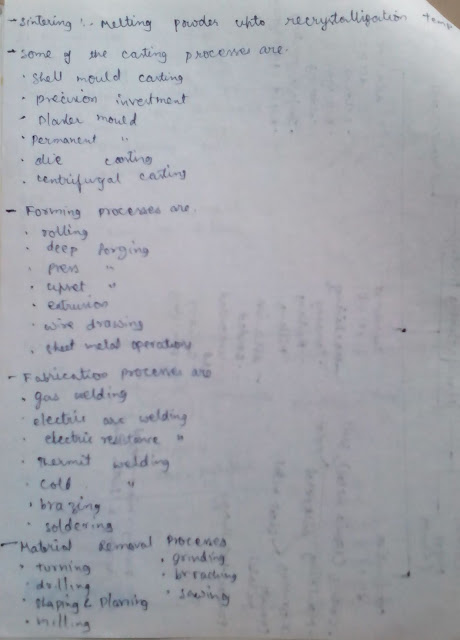 - Sintering :- Melting powder upto recrystallization temp
- Some of the casting processes are.
· Shell mould casting
· precision investment
· Plaster mould
· Permanent "
· die casting
· centrifugal casting
- Forming processes are.
· rolling
· deep forging
· press "
· upset "
· extrusion
· wire drawing
· sheet metal operations
- Fabrication processes are
· gas welding
· electric arc welding
· electric resistance "
· Thermit welding
· Cold "
· brazing
· soldering
- Material Removal Processes
· turning
· drilling
· Shaping & Planing
· milling
· grinding
· broaching
· sawing